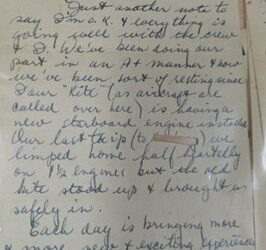 Just another note to
say I'm O.K. & everything is
going well with the crew
& I. We've been doing our
part in an A+ manner & now
we've been sort of resting since
our "Kite" (as aircraft are
called over here) is having a
new starboard engine installed
Our last trip (to we
limped home half
on 1½ engines but the old
kite stood up & brought us
safely in.
Each day is bringing more
& more new & exciting experiences